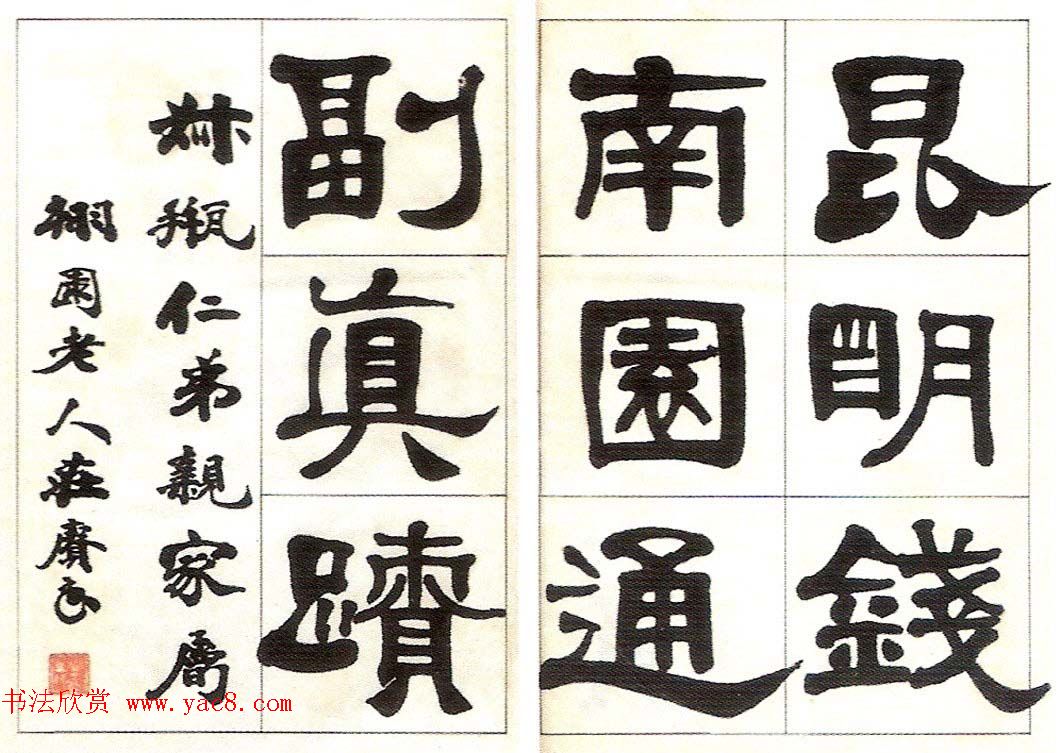 昆明錢
南園通
副真蹟
叔瓶仁弟親家屬
翊園老人莊賡良
书法欣赏 www.yac8.com